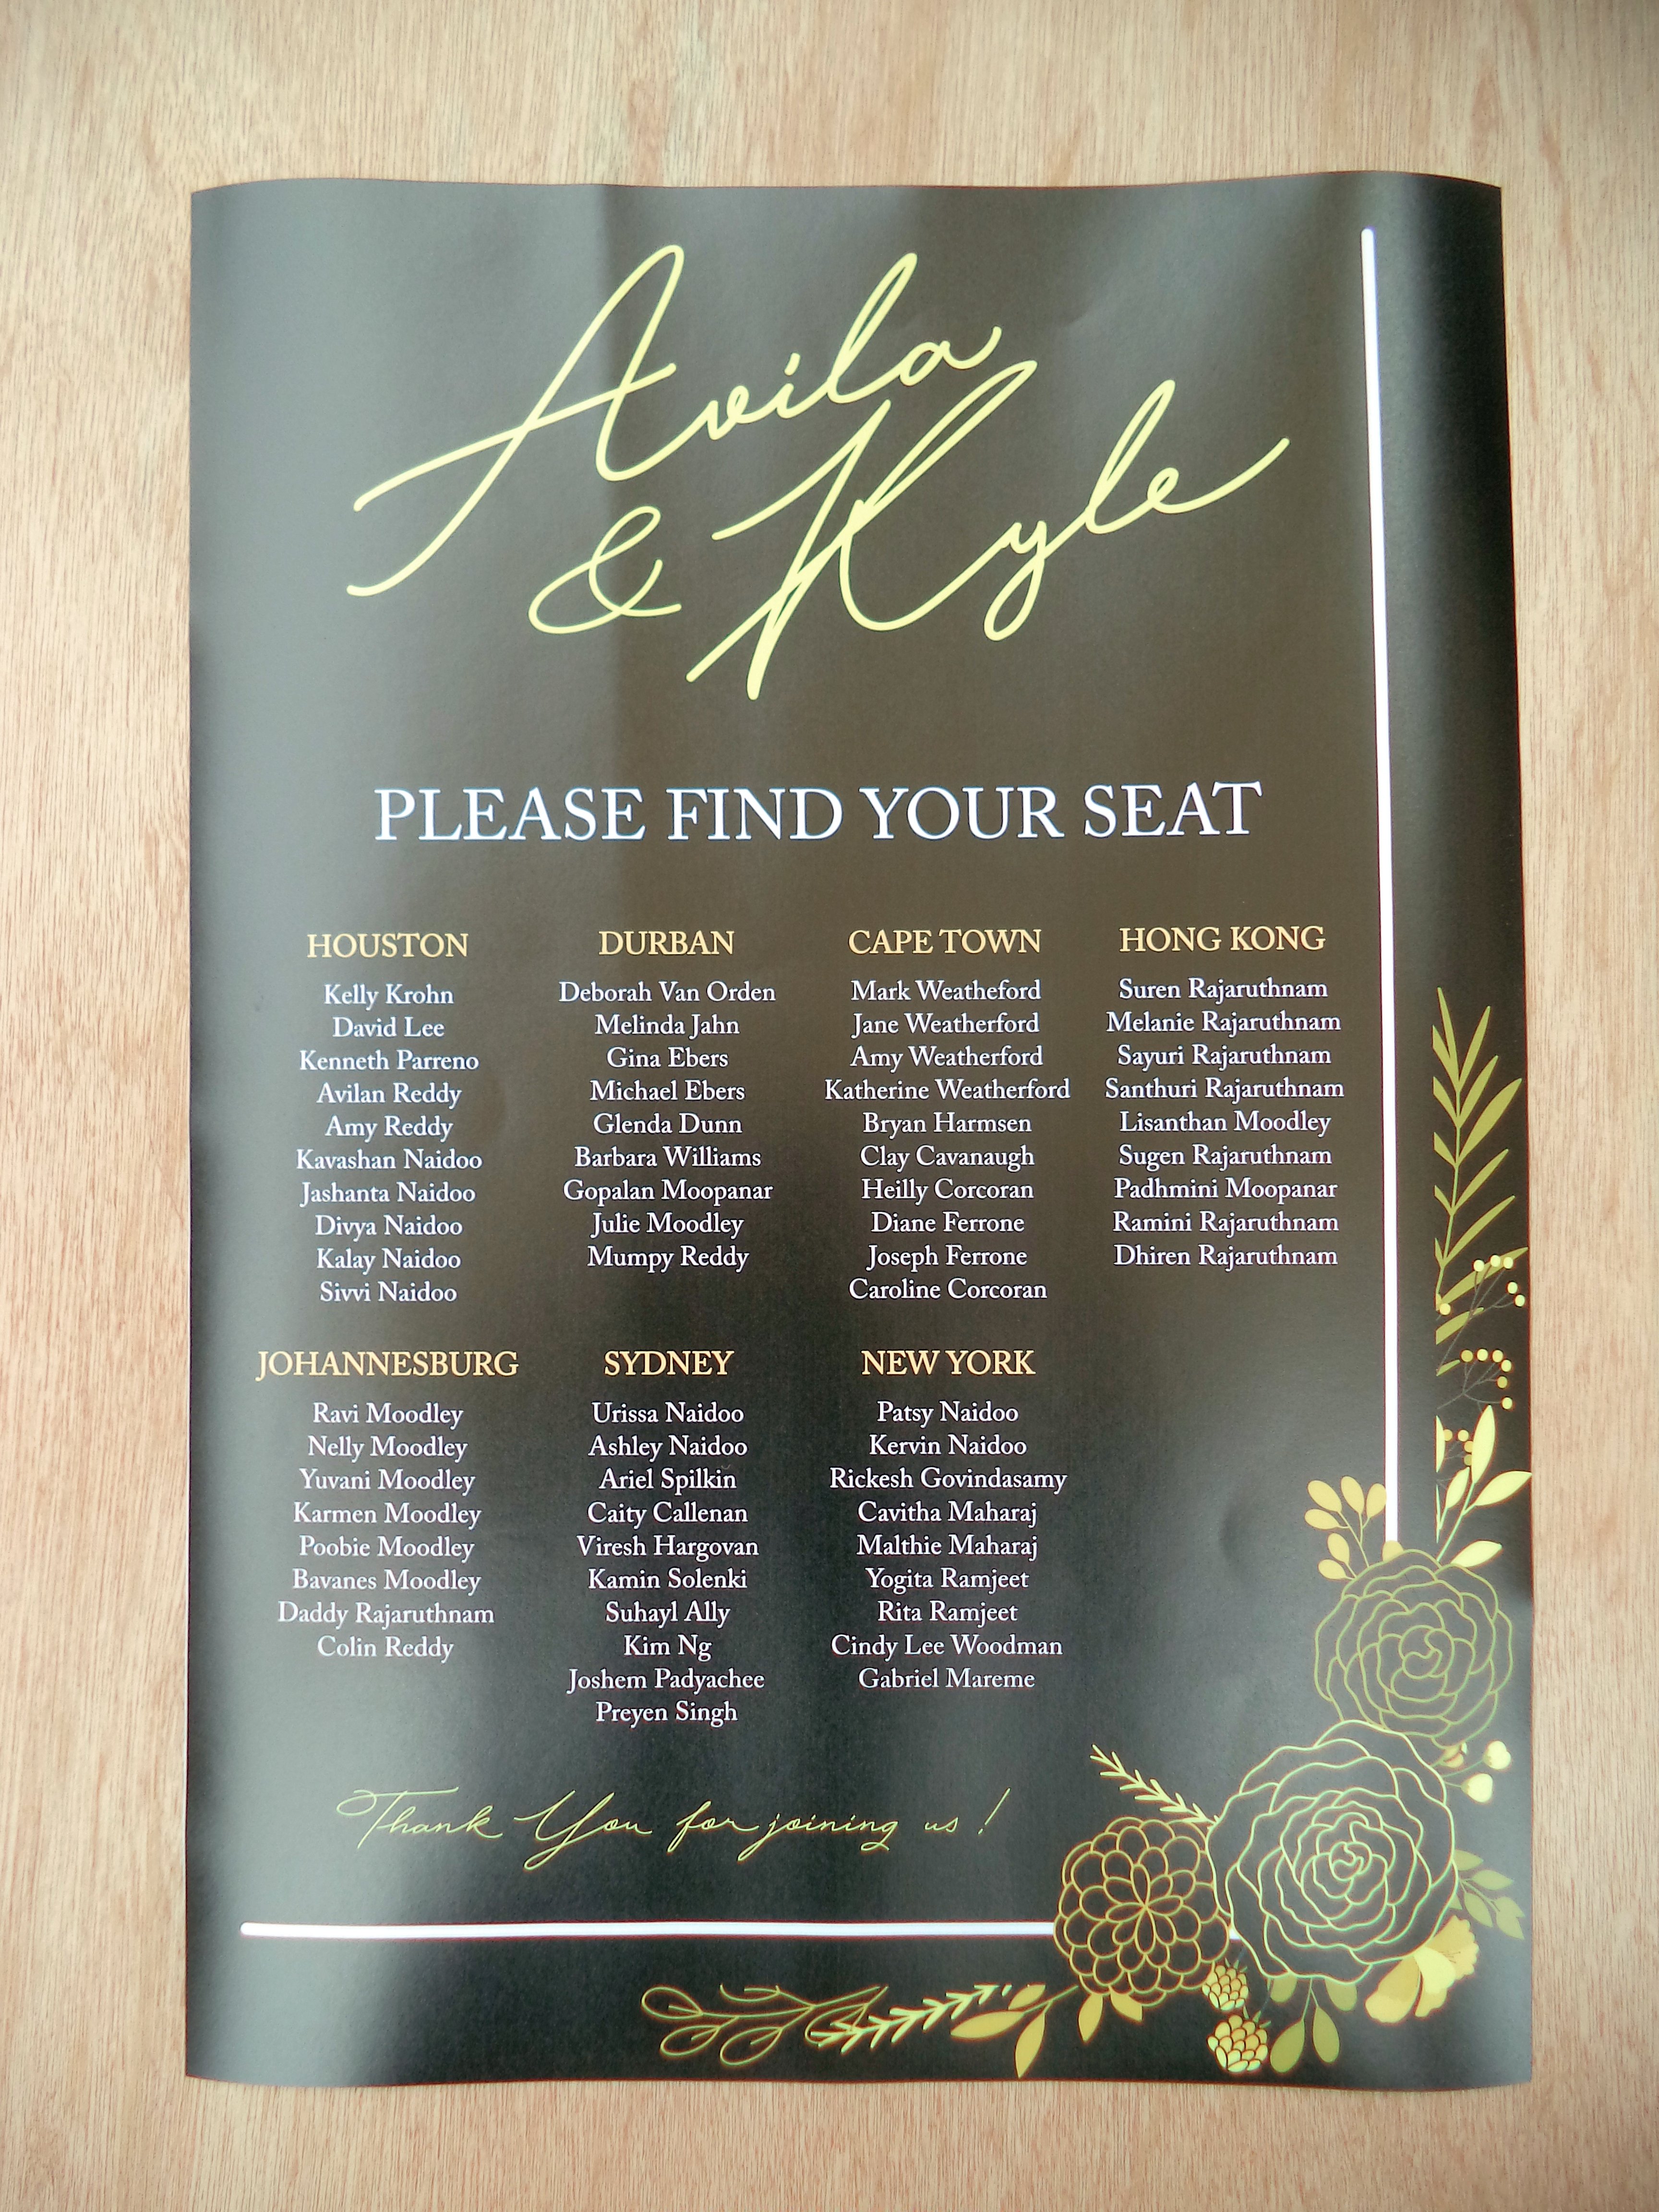 Avila
& Kyle
PLEASE FIND YOUR SEAT
HOUSTON
Kelly Krohn
David Lee
Kenneth Parreno
Avilan Reddy
Amy Reddy
Kavashan Naidoo
Jashanta Naidoo
Divya Naidoo
Kalay Naidoo
Sivvi Naidoo
DURBAN
Deborah Van Orden
Melinda Jahn
Gina Ebers
Michael Ebers
Glenda Dunn
Barbara Williams
Gopalan Moopanar
Julie Moodley
Mumpy Reddy
CAPE TOWN
Mark Weatheford
Jane Weatherford
Amy Weatherford
Katherine Weatherford
Bryan Harmsen
Clay Cavanaugh
Heilly Corcoran
Diane Ferrone
Joseph Ferrone
Caroline Corcoran
HONG KONG
Suren Rajaruthnam
Melanie Rajaruthnam
Sayuri Rajaruthnam
Santhuri Rajaruthnam
Lisanthan Moodley
Sugen Rajaruthnam
Padhmini Moopanar
Ramini Rajaruthnam
Dhiren Rajaruthnam
JOHANNESBURG
Ravi Moodley
Nelly Moodley
Yuvani Moodley
Karmen Moodley
Poobie Moodley
Bavanes Moodley
Daddy Rajaruthnam
Colin Reddy
SYDNEY
Urissa Naidoo
Ashley Naidoo
Ariel Spilkin
Caity Callenan
Viresh Hargovan
Kamin Solenki
Suhayl Ally
Kim Ng
Joshem Padyachee
Preyen Singh
NEW YORK
Patsy Naidoo
Kervin Naidoo
Rickesh Govindasamy
Cavitha Maharaj
Malthie Maharaj
Yogita Ramjeet
Rita Ramjeet
Cindy Lee Woodman
Gabriel Mareme
Thank You for joining us !